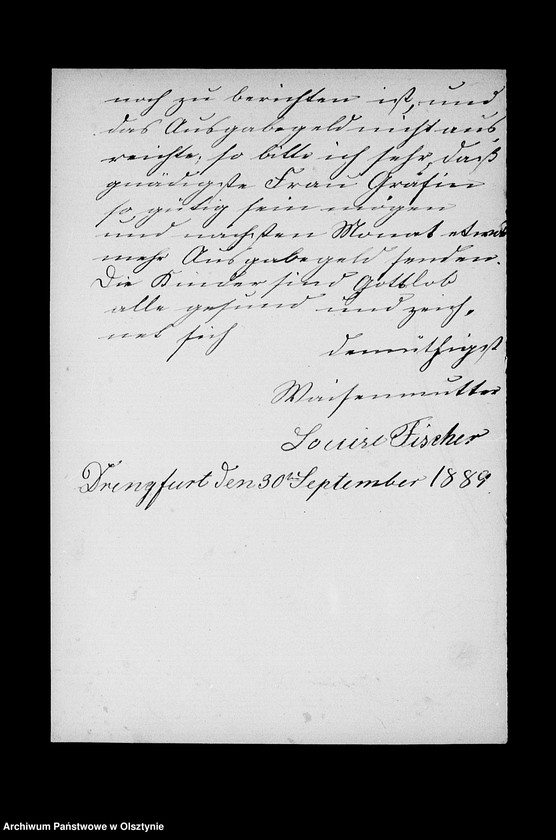 noch zu berichten ist, und
das Ausgabegeld nicht aus,
reichte, so bitte ich sehr, daß
gnädigste Frau Gräfin
so gütig sein mögen
und nächsten Monat etwas
mehr Ausgabegeld senden.
Die Kinder sind Gottlob
alle gesund und zeich,
net sich
demüthigst
Waisenmutter
Louise Fischer
Drengfurt den 30ten September 1889.
Archiwum Państwowe w Olsztynie